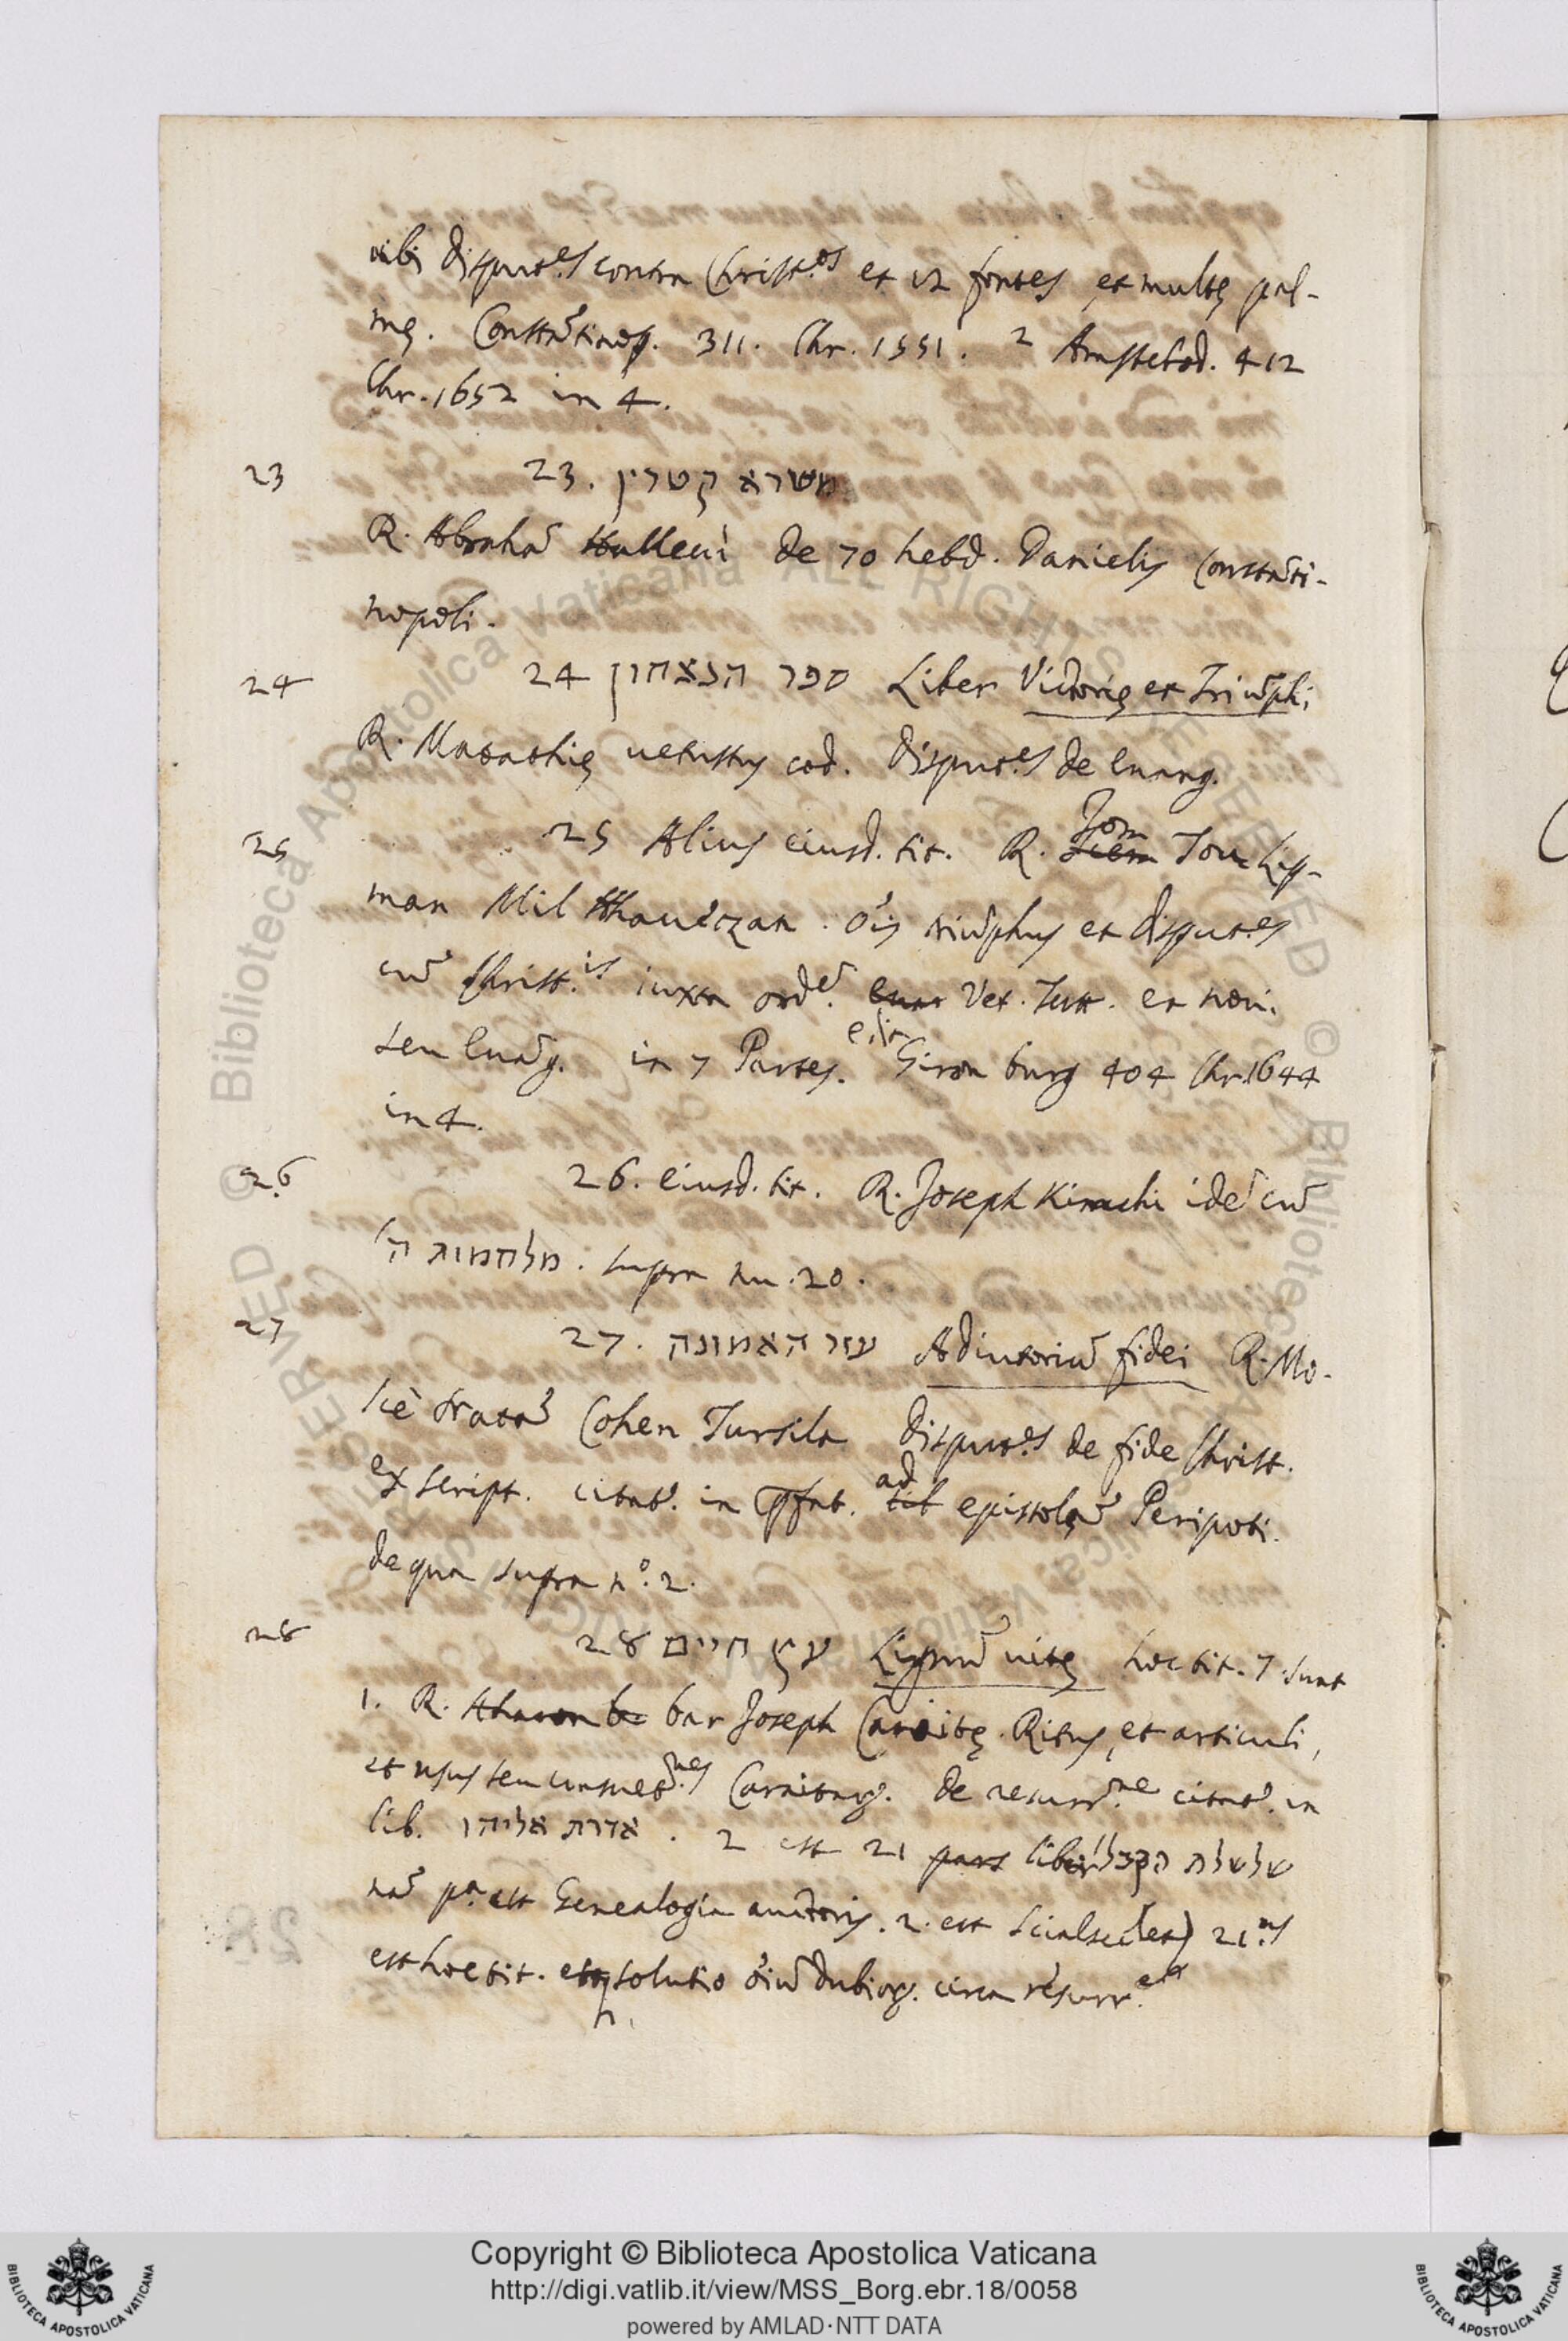 uibi disput.es contra Christ.os et 12 fontes et multę pal-
mę. Constātinop. 311. Chr. 1551. 2 Amstelod. 412
Chr. 1652 in 4.
23 23. משרא קטרין
R. Abrahā Hallevì de 70 hebd. Danielis Constāti-
nopoli.
24 24 ספר הנצחון Liber Victorię et Triūphi
R. Matathię uetustus cod. disput.es de Euang.
25 25 Alius eiusd. tit. R. Jom Tou Lip-
man Mil Hhauèczan. oīs triūphus et disput.es
cū Christ.is iuxta ordē. Vet. Test. et noui
seu Euāg. in 7 Partes. edit Giron burg 404 Chr. 1644
in 4.
26 26. eiusd. tit. R. Joseph Kimchi idē cū
מלחמות ה' . supra nu. 20.
27 27. עזר האמונה Adiutoriū fidei R. Mo-
scè Cohen Tursila disput.es de fide Christ.
ex script. citat. in ad epistolā Peripoti.
de qua supra n.o 2.
28 28 עץ חיים Lignū uitę hoc tit. 7 sunt
1. R. Aharon bar Joseph Caraitę. Ritus, et articuli,
et usus seu consuetd.nes Caraitarū. de resurr.ne citat. in
lib. אדרת אליהו . 2 est 21 liber שלשלת הקבלה
nā p.a est Genealogia auctoris. 2. est Scialscelet) 21.us
est hoc tit. solutio oīū dubiorū. circa resurr.
Copyright © Biblioteca Apostolica Vaticana
http://digi.vatlib.it/view/MSS_Borg.ebr.18/0058
powered by AMLAD·NTT DATA